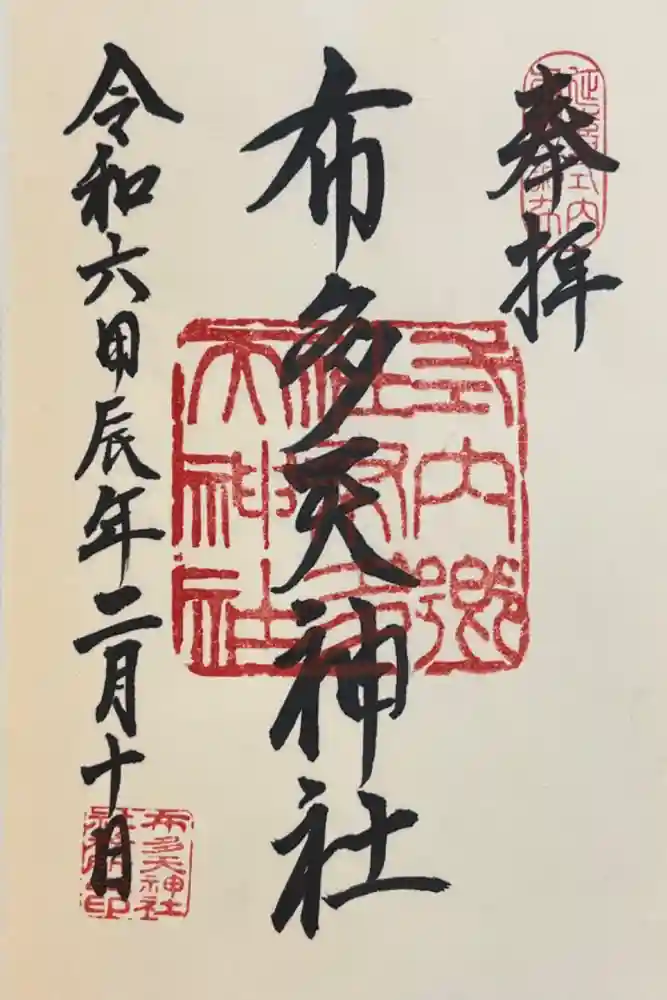 奉拝
布多天神社
令和六甲辰年二月十日
式内郷社布多天神社
布多天神社